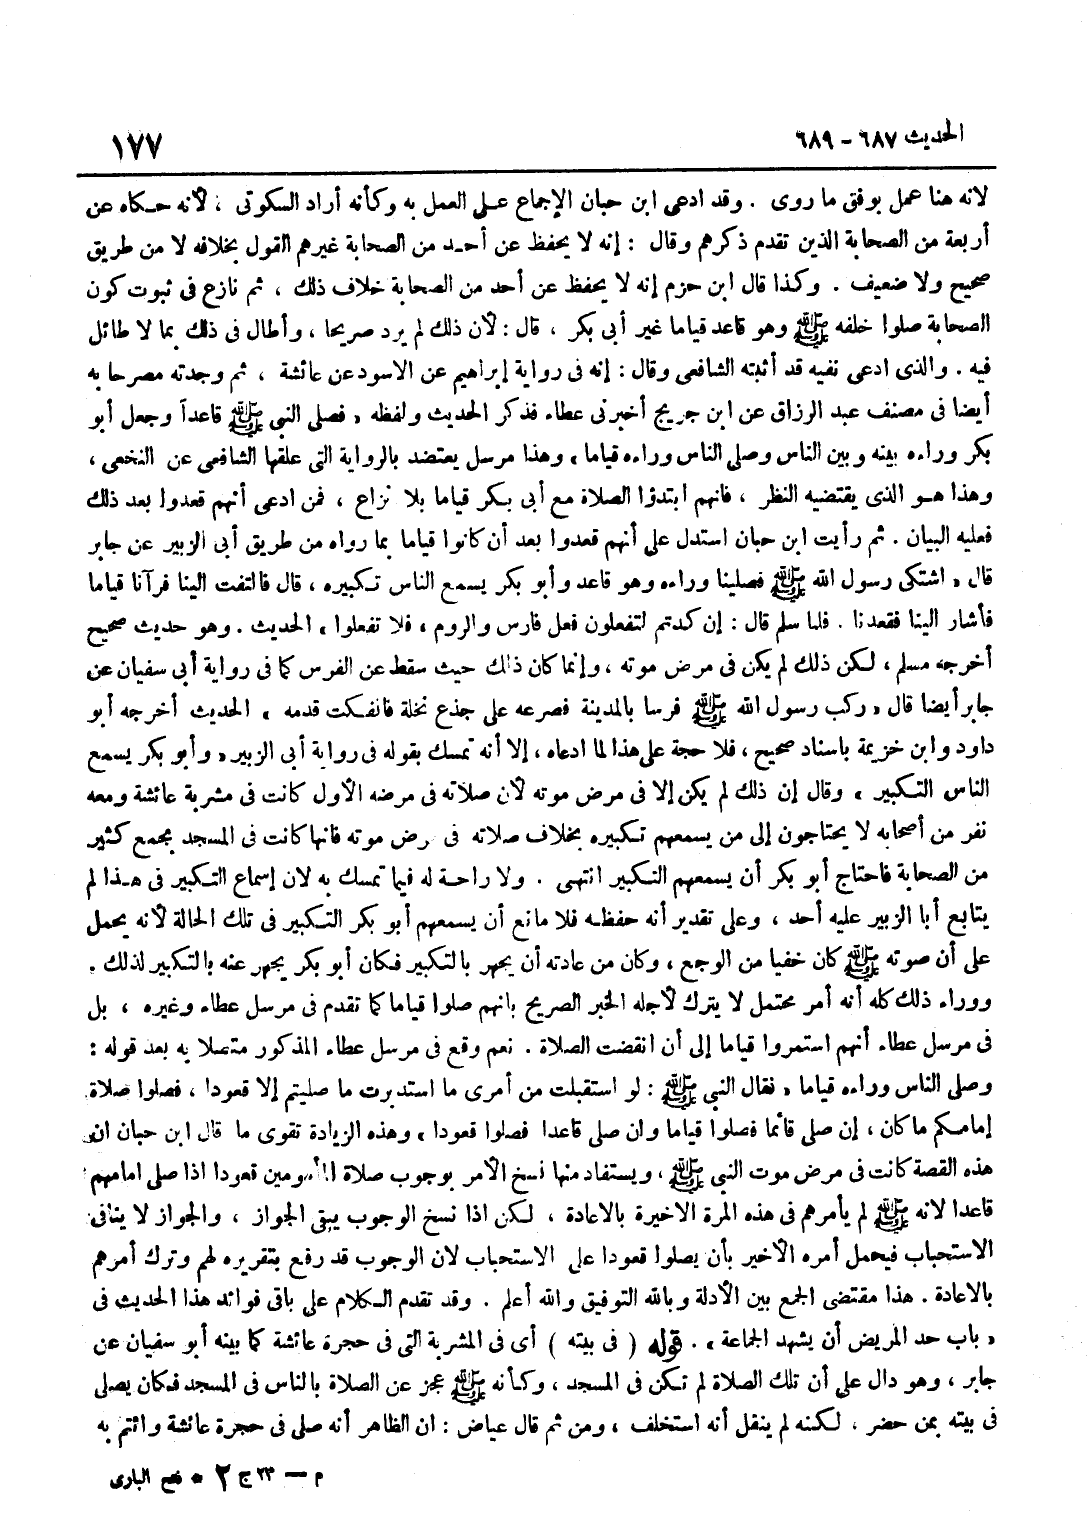 الحديث ٦٨٧ – ٦٨٩
١٧٧
لانه هنا عمل بوفق ما روى . وقد ادعى ابن حبان الإجماع على العمل به وكأنه أراد السكوتى ، لأنه حكاه عن
أربعة من الصحابة الذين تقدم ذكرهم وقال : إنه لا يحفظ عن أحد من الصحابة غيرهم القول بخلافه لا من طريق
صحيح ولا ضعيف . وكذا قال ابن حزم إنه لا يحفظ عن أحد من الصحابة خلاف ذلك ، ثم نازع فى ثبوت كون
الصحابة صلوا خلفه ﷺ وهو قاعد قياما غير أبى بكر ، قال : لأن ذلك لم يرد صريحا ، وأطال فى ذلك بما لا طائل
فيه . والذى ادعى نفيه قد أثبته الشافعى وقال : إنه فى رواية إبراهيم عن الاسود عن عائشة ، ثم وجدته مصرحا به
أيضا فى مصنف عبد الرزاق عن ابن جريج أخبرنى عطاء فذكر الحديث ولفظه « فصلى النبى ﷺ قاعداً وجعل أبو
بكر وراءه بينه وبين الناس وصلى الناس وراءه قياما ، وهذا مرسل يعتضد بالرواية التى علقها الشافعى عن النخعى ،
وهذا هو الذى يقتضيه النظر ، فانهم ابتدؤا الصلاة مع أبى بكر قياما بلا نزاع ، فمن ادعى أنهم قعدوا بعد ذلك
فعليه البيان . ثم رأيت ابن حبان استدل على أنهم قعدوا بعد أن كانوا قياما بما رواه من طريق أبى الزبير عن جابر
قال « اشتكى رسول الله ﷺ فصلينا وراءه وهو قاعد وأبو بكر يسمع الناس تكبيره ، قال فالتفت الينا فرآنا قياما
فأشار الينا فقعدنا . فلما سلم قال : إن كدتم لتفعلون فعل فارس والروم ، فلا تفعلوا ، الحديث . وهو حديث صحيح
أخرجه مسلم ، لكن ذلك لم يكن فى مرض موته ، وإنما كان ذلك حيث سقط عن الفرس كما فى رواية أبى سفيان عن
جابر أيضا قال « ركب رسول الله ﷺ فرسا بالمدينة فصرعه على جذع نخلة فانفكت قدمه ، الحديث أخرجه أبو
داود وابن خزيمة باسناد صحيح ، فلا حجة على هذا لما ادعاه ، إلا أنه تمسك بقوله فى رواية أبى الزبير « وأبو بكر يسمع
الناس التكبير ، وقال إن ذلك لم يكن إلا فى مرض موته لأن صلاته فى مرضه الأول كانت فى مشربة عائشة ومعه
نفر من أصحابه لا يحتاجون إلى من يسمعهم تكبيره بخلاف صلاته فى مرض موته فانها كانت فى المسجد بجمع كثير
من الصحابة فاحتاج أبو بكر أن يسمعهم التكبير انتهى . ولا راحة له فيما تمسك به لان إسماع التكبير فى هذا لم
يتابع أبا الزبير عليه أحد ، وعلى تقدير أنه حفظه فلا مانع أن يسمعهم أبو بكر التكبير فى تلك الحالة لأنه يحمل
على أن صوته ﷺ كان خفيا من الوجع ، وكان من عادته أن يجهر بالتكبير فكان أبو بكر يجهر عنه بالتكبير لذلك .
ووراء ذلك كله أنه أمر محتمل لا يترك لأجله الخبر الصريح بانهم صلوا قياما كما تقدم فى مرسل عطاء وغيره ، بل
فى مرسل عطاء أنهم استمروا قياما إلى أن انقضت الصلاة . نعم وقع فى مرسل عطاء المذكور متصلا به بعد قوله :
وصلى الناس وراءه قياما « فقال النبى ﷺ : لو استقبلت من أمرى ما استدبرت ما صليتم إلا قعودا ، فصلوا صلاة
إمامكم ما كان ، إن صلى قائما فصلوا قياما وان صلى قاعدا فصلوا قعودا ، وهذه الزيادة تقوى ما قال ابن حبان ان
هذه القصة كانت فى مرض موت النبى ﷺ ، ويستفاد منها نسخ الأمر بوجوب صلاة المأمومين قعودا اذا صلى امامهم
قاعدا لانه ﷺ لم يأمرهم فى هذه المرة الاخيرة بالاعادة ، لكن اذا نسخ الوجوب يبقى الجواز ، والجواز لا ينافى
الاستحباب فيحمل أمره الأخير بأن يصلوا قعودا على الاستحباب لان الوجوب قد رفع بتقريره لهم وترك أمرهم
بالاعادة . هذا مقتضى الجمع بين الأدلة وبالله التوفيق والله أعلم . وقد تقدم الكلام على باقى فوائد هذا الحديث فى
« باب حد المريض أن يشهد الجماعة » . قوله ( فى بيته ) أى فى المشربة التى فى حجرة عائشة كما بينه أبو سفيان عن
جابر ، وهو دال على أن تلك الصلاة لم تكن فى المسجد ، وكأنه ﷺ عجز عن الصلاة بالناس فى المسجد فكان يصلى
فى بيته بمن حضر ، لكنه لم ينقل أنه استخلف ، ومن ثم قال عياض : ان الظاهر أنه صلى فى حجرة عائشة وائتم به
م — ٢٣ ج ٢ * فتح البارى